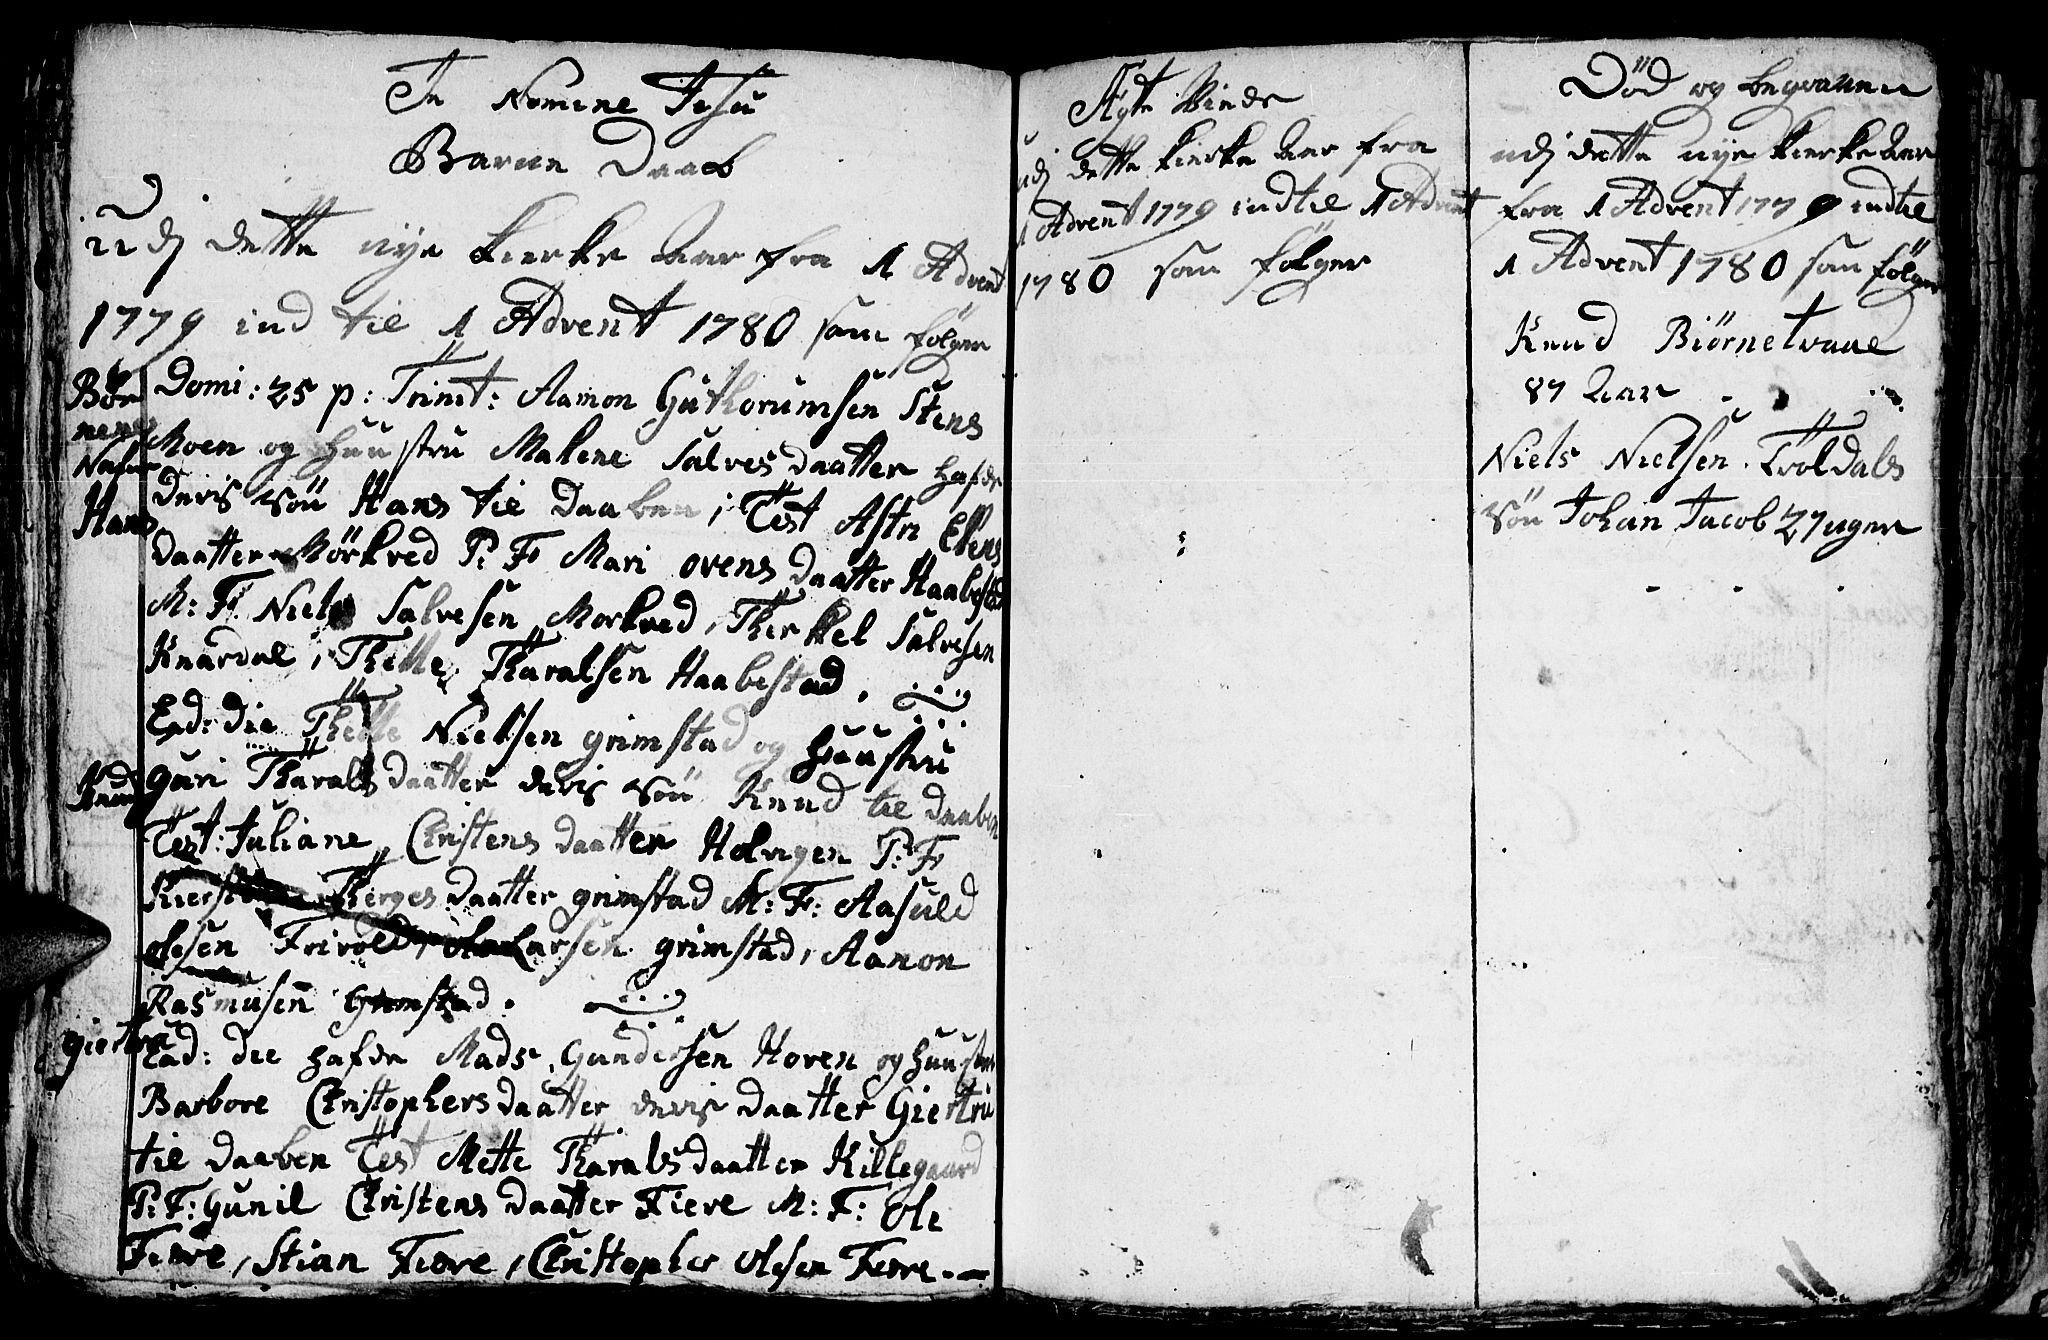 In Nomine Jesu
Baruen Daab
udj dette nye Kierke Aar fra 1 Advent
1779 ind til 1 Advent 1780 som følger
Bør
nenes
Nafne
Domi: 25 p: Trinit: Aamon Guthorumsen Stens
Moen og Huustru Malene Salvesdaatter hafde
Hans
deris Søn Hans til Daaben; Test Astri Ellens
daatter Mörkved P. F Mari ovens daatter Haabestad
M: F Niels Salvesen Morkved, Therkel Salvesen
Knardal, Thelle Tharalsen Haabestad.
Ead: die Thelle Nielsen grimstad og Huustru
Knud
guri Tharalsdaatter deris Søn Knud til Daaben
Test: Juliane Christensdaatter Holvigen P: F
Therges daatter grimstad M: F: Aasuld
olesen Frivold, Larsen grimstad, Aamon
Rasmusen Grimstad.
Giertru
Ead: die hafde Mads Gundersen Hoven og Huustru
Barbore Christophersdaatter deris daatter Giertru
til daaben Test Mette Tharalsdaatter Killegaard
P: F: Gunil Christensdaatter Fiere M: F: Ole
Fiere, Stian Fiere, Christopher olesen Fiere
Ægte Viede
udj dette Kierke Aar fra
1 Advent 1779 indtil 1 Advent
1780 som følger
Død og begravne
udj dette nye Kierke Aar
fra 1 Advent 1779 indtil
1 Advent 1780 som følger
Knud Biørnetvaae
87 Aar
Niels Nielsen Troldals
Søn Johan Jacob 27 uger